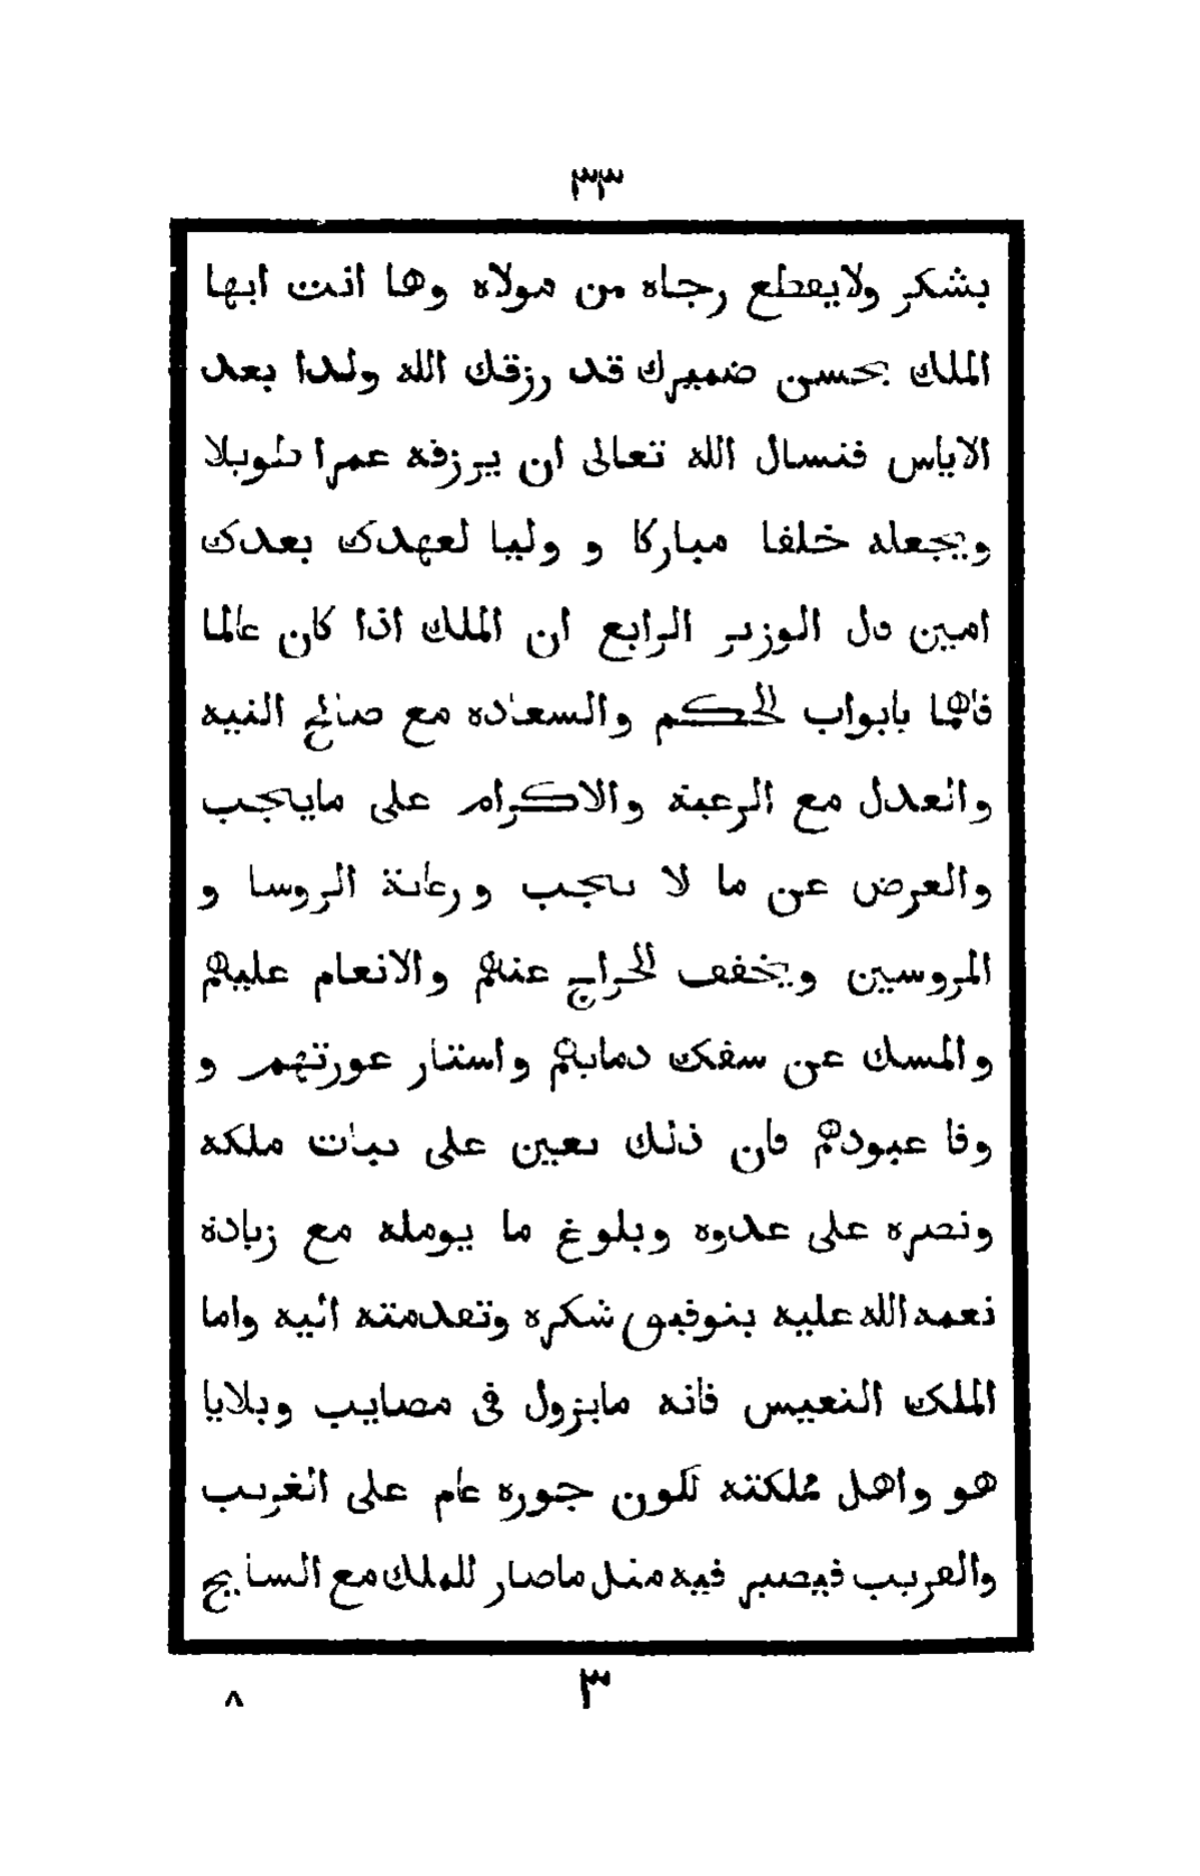 ٣٣
يشكر ولايقطع رجاه من مولاه وها انت ايها
الملك بحسن ضميرك قد رزقك الله ولدا بعد
الاياس فنسال الله تعالى ان يرزقه عمرا طويلا
ويجعله خلفا مباركا و وليا لعهدك بعدك
امين قال الوزير الرابع ان الملك اذا كان عالما
فاهما بابواب الحكم والسعاده مع صالح النيه
والعدل مع الرعية والاكرام على مايجب
والعرض عن ما لا يجب ورعاية الروسا و
المروسين ويخفف الخراج عنهم والانعام عليهم
والمسك عن سفك دمايهم واستار عورتهم و
وفا عبودهم فان ذلك يعين على ثبات ملكه
ونصره على عدوه وبلوغ ما يومله مع زيادة
نعمه الله عليه بتوفيق شكره وتقدمته اليه واما
الملك النعيس فانه مايزول فى مصايب وبلايا
هو واهل مملكته تكون جوره عام على الغريب
والقريب فيصير فيه مثل ماصار للملك مع السايح
٣
٨